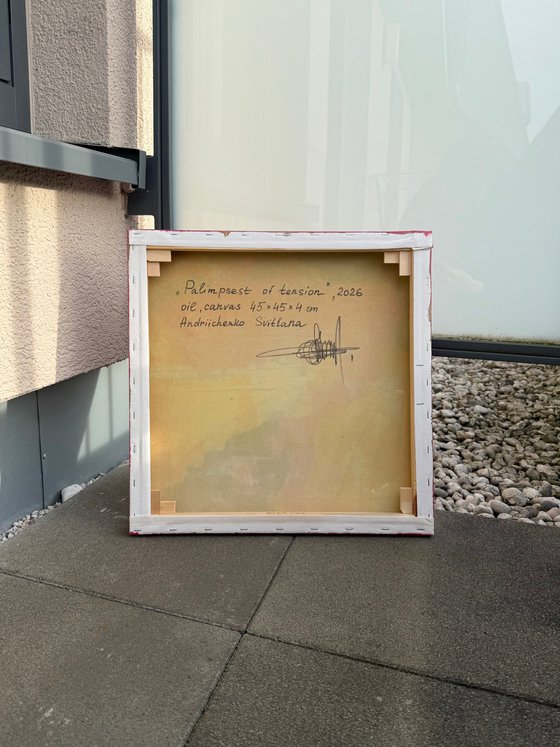 „Palimpsest of tension", 2026
oil, canvas 45×45×4 cm
Andriichenko Svitlana